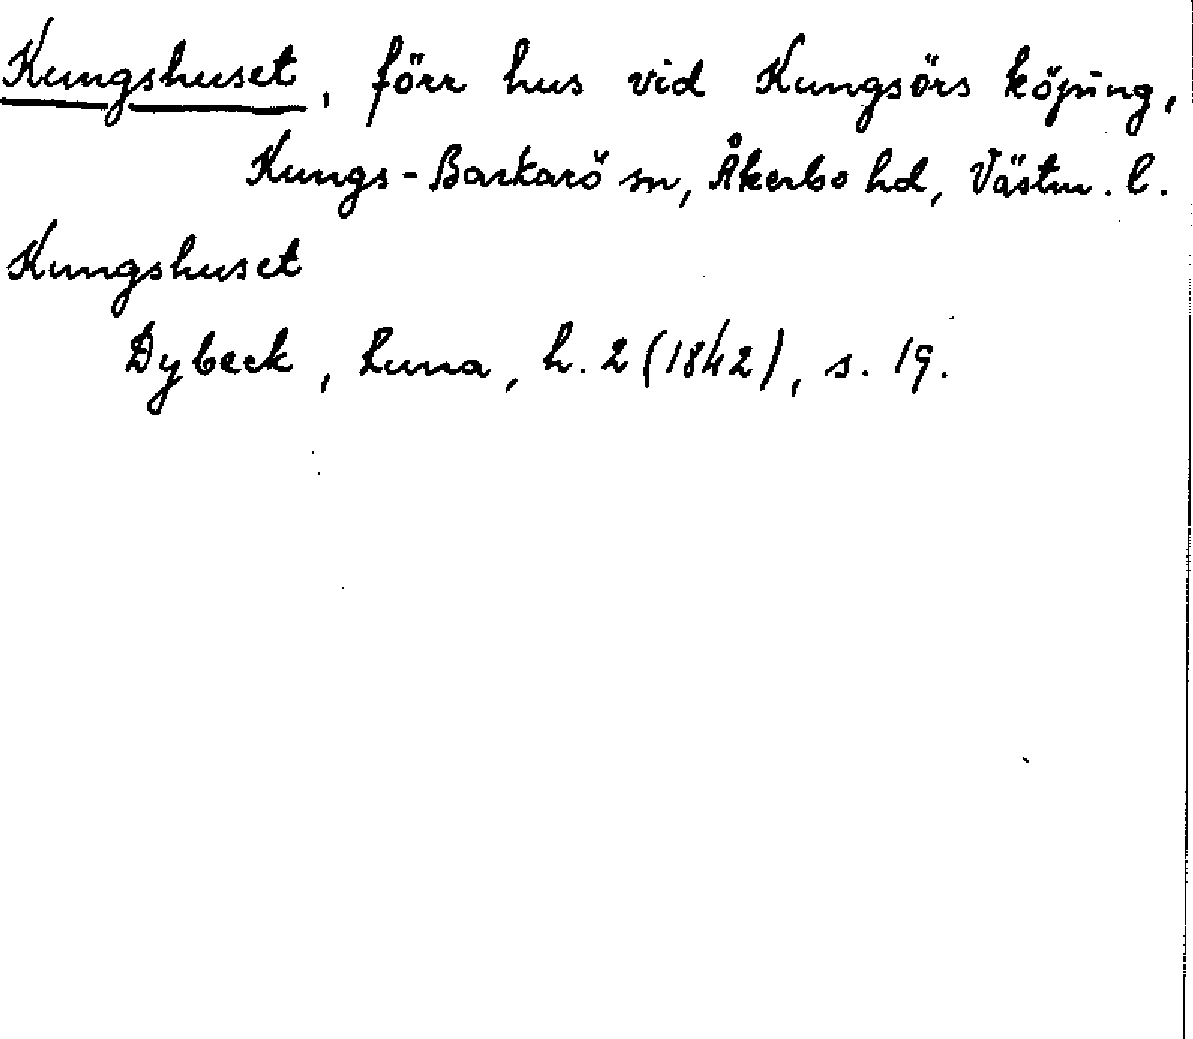 Kungshuset, förr hus vid Kungsörs köping,
Kungs-Barkarö sn, Åkerbo hd, Västm. l.
Kungshuset
Dybeck, Runa, h. 2 (1842), s. 19.